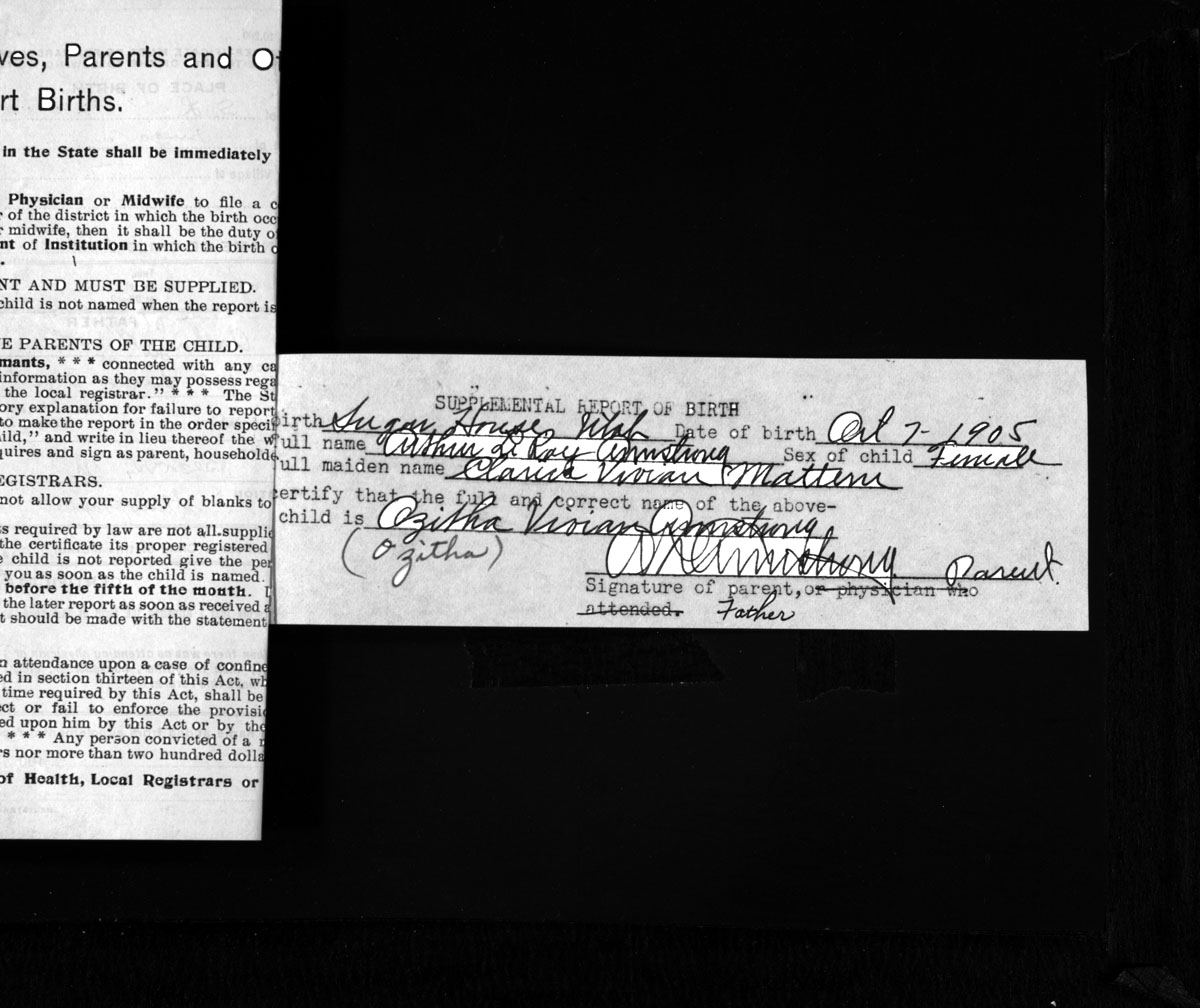 ves, Parents and Ot
rt Births.
in the State shall be immediately
Physician or Midwife to file a c
r of the district in which the birth occ
r midwife, then it shall be the duty o
nt of Institution in which the birth o
NT AND MUST BE SUPPLIED.
child is not named when the report is
E PARENTS OF THE CHILD.
mants, * * * connected with any ca
information as they may possess rega
the local registrar." * * * The St
ory explanation for failure to report
to make the report in the order speci
ild," and write in lieu thereof the w
quires and sign as parent, householde
EGISTRARS.
not allow your supply of blanks to
s required by law are not all supplie
the certificate its proper registered
e child is not reported give the per
you as soon as the child is named.
before the fifth of the month. I
the later report as soon as received a
t should be made with the statement
n attendance upon a case of confine
ed in section thirteen of this Act, wh
time required by this Act, shall be
ct or fail to enforce the provisio
ed upon him by this Act or by the
* * * Any person convicted of a
rs nor more than two hundred dolla
of Health, Local Registrars or
SUPPLEMENTAL REPORT OF BIRTH
irth Sugar House, Utah Date of birth Oct 7- 1905
full name Arthur Le Roy Armstrong Sex of child Female
full maiden name Vivian
ertify that the full and correct name of the above-
child is Ozitha Vivian Armstrong
(Ozitha)
Armstrong Parent.
Signature of parent, or physician who
attended. Father